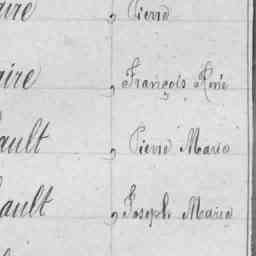 aire, Pierre
aire, François René
ault, Pierre Marie
ault, Joseph Marie